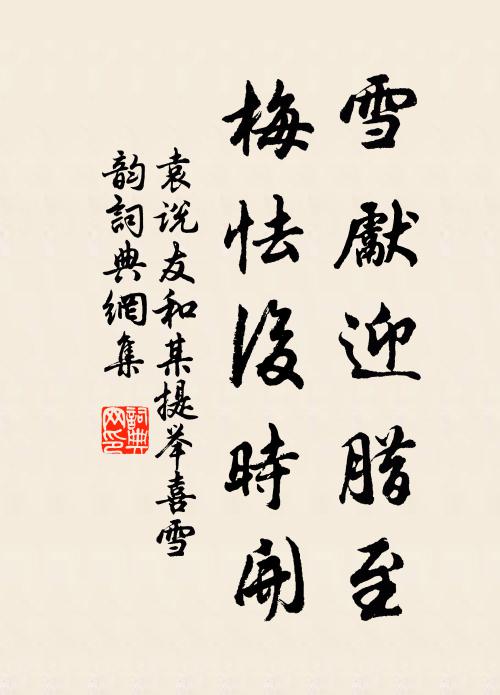 雪獻迎腊至
梅怯後時開
袁说友和某提举喜雪
韵詞典網集
詞典
网印